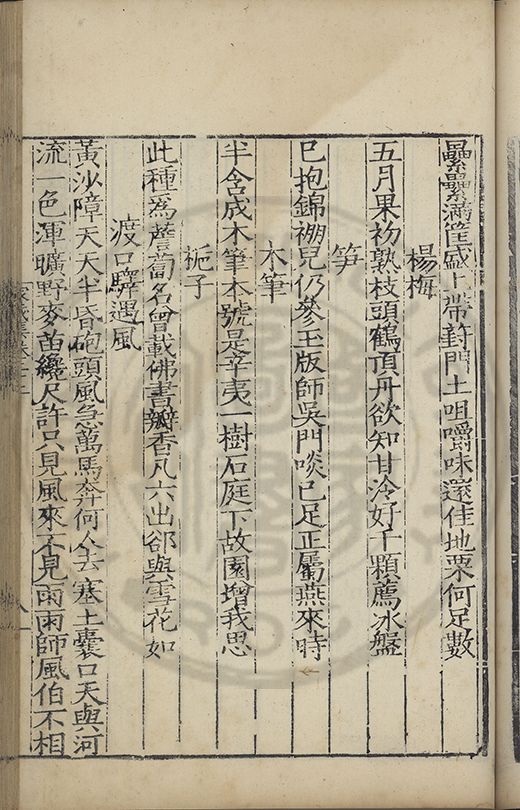 纍纍滿筐盛上帶葑門土咀嚼味還佳地栗何足數
楊梅
五月果初熟枝頭鶴頂丹欲知甘冷好千顆薦冰盤
笋
已抱錦褓兒仍參玉版師吳門啖已足正屬燕來時
木筆
半含成木筆本號是辛夷一樹石庭下故園增我思
栀子
此種為薝蔔名曾載佛書瓣香凡六出郤與雪花如
渡口驛遇風
黃沙障天天半昏砲頭風急萬馬奔何人去塞土囊口天與河
流一色渾曠野麥苗纔尺許只見風來不見雨雨師風伯不相